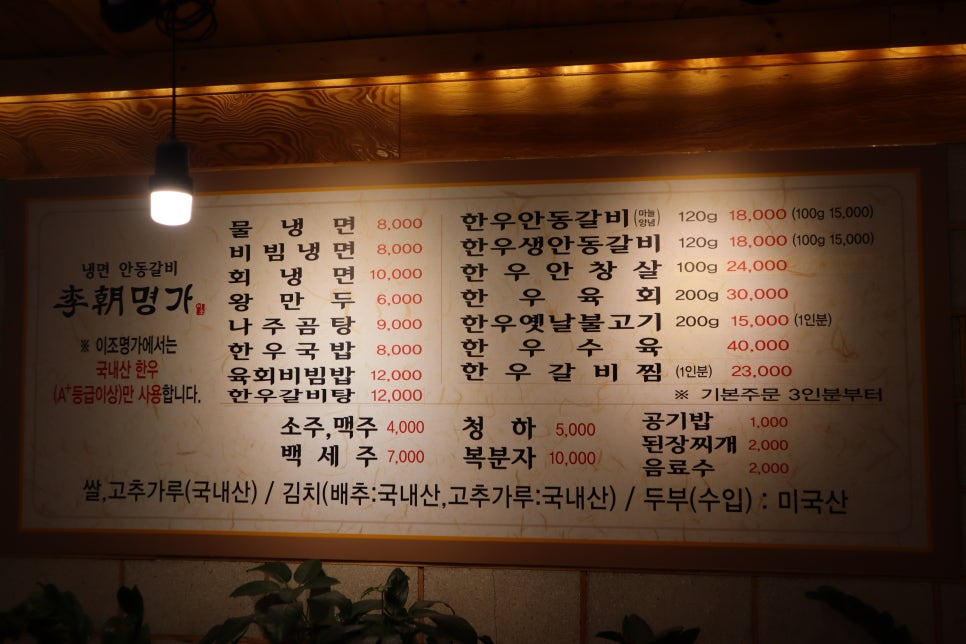 냉면 안동갈비
李朝명가
※ 이조명가에서는
국내산 한우
(A+등급이상)만 사용합니다.
물냉면 8,000
비빔냉면 8,000
회냉면 10,000
왕만두 6,000
나주곰탕 9,000
한우국밥 8,000
육회비빔밥 12,000
한우갈비탕 12,000
한우안동갈비(마늘양념) 120g 18,000 (100g 15,000)
한우생안동갈비 120g 18,000 (100g 15,000)
한우안창살 100g 24,000
한우육회 200g 30,000
한우옛날불고기 200g 15,000 (1인분)
한우수육 40,000
한우갈비찜 (1인분) 23,000
※ 기본주문 3인분부터
소주,맥주 4,000
백세주 7,000
청하 5,000
복분자 10,000
공기밥 1,000
된장찌개 2,000
음료수 2,000
쌀,고추가루(국내산) / 김치(배추:국내산,고추가루:국내산) / 두부(수입) : 미국산